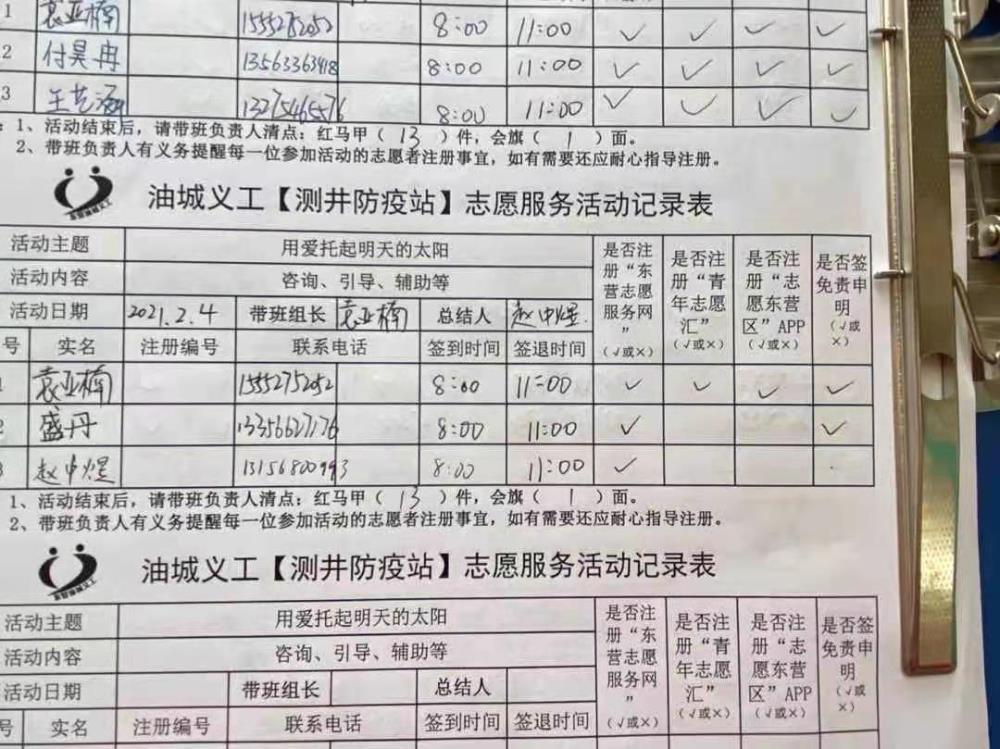 1 袁亚楠 1555275252 8:00 11:00 ✓ ✓ ✓ ✓
2 付昊冉 13563363418 8:00 11:00 ✓ ✓ ✓ ✓
3 王艺涵 13275465576 8:00 11:00 ✓ ✓ ✓ ✓
：1、活动结束后，请带班负责人清点：红马甲（ 13 ）件，会旗（ 1 ）面。
2、带班负责人有义务提醒每一位参加活动的志愿者注册事宜，如有需要还应耐心指导注册。
油城义工【测井防疫站】志愿服务活动记录表
活动主题 用爱托起明天的太阳 是否注册“东营志愿服务网”（√或×） 是否注册“青年志愿汇”（√或×） 是否注册“志愿东营区”APP（√或×） 是否签免责申明（√或×）
活动内容 咨询、引导、辅助等
活动日期 2021.2.4 带班组长 袁亚楠 总结人 赵中煜
号 实名 注册编号 联系电话 签到时间 签退时间
1 袁亚楠 1555275252 8:00 11:00 ✓ ✓ ✓ ✓
2 盛丹 13356627176 8:00 11:00 ✓ ✓
3 赵中煜 13156800993 8:00 11:00 ✓
1、活动结束后，请带班负责人清点：红马甲（ 13 ）件，会旗（ 1 ）面。
2、带班负责人有义务提醒每一位参加活动的志愿者注册事宜，如有需要还应耐心指导注册。
油城义工【测井防疫站】志愿服务活动记录表
活动主题 用爱托起明天的太阳 是否注册“东营志愿服务网”（√或×） 是否注册“青年志愿汇”（√或×） 是否注册“志愿东营区”APP（√或×） 是否签免责申明（√或×）
活动内容 咨询、引导、辅助等
活动日期 带班组长 总结人
号 实名 注册编号 联系电话 签到时间 签退时间